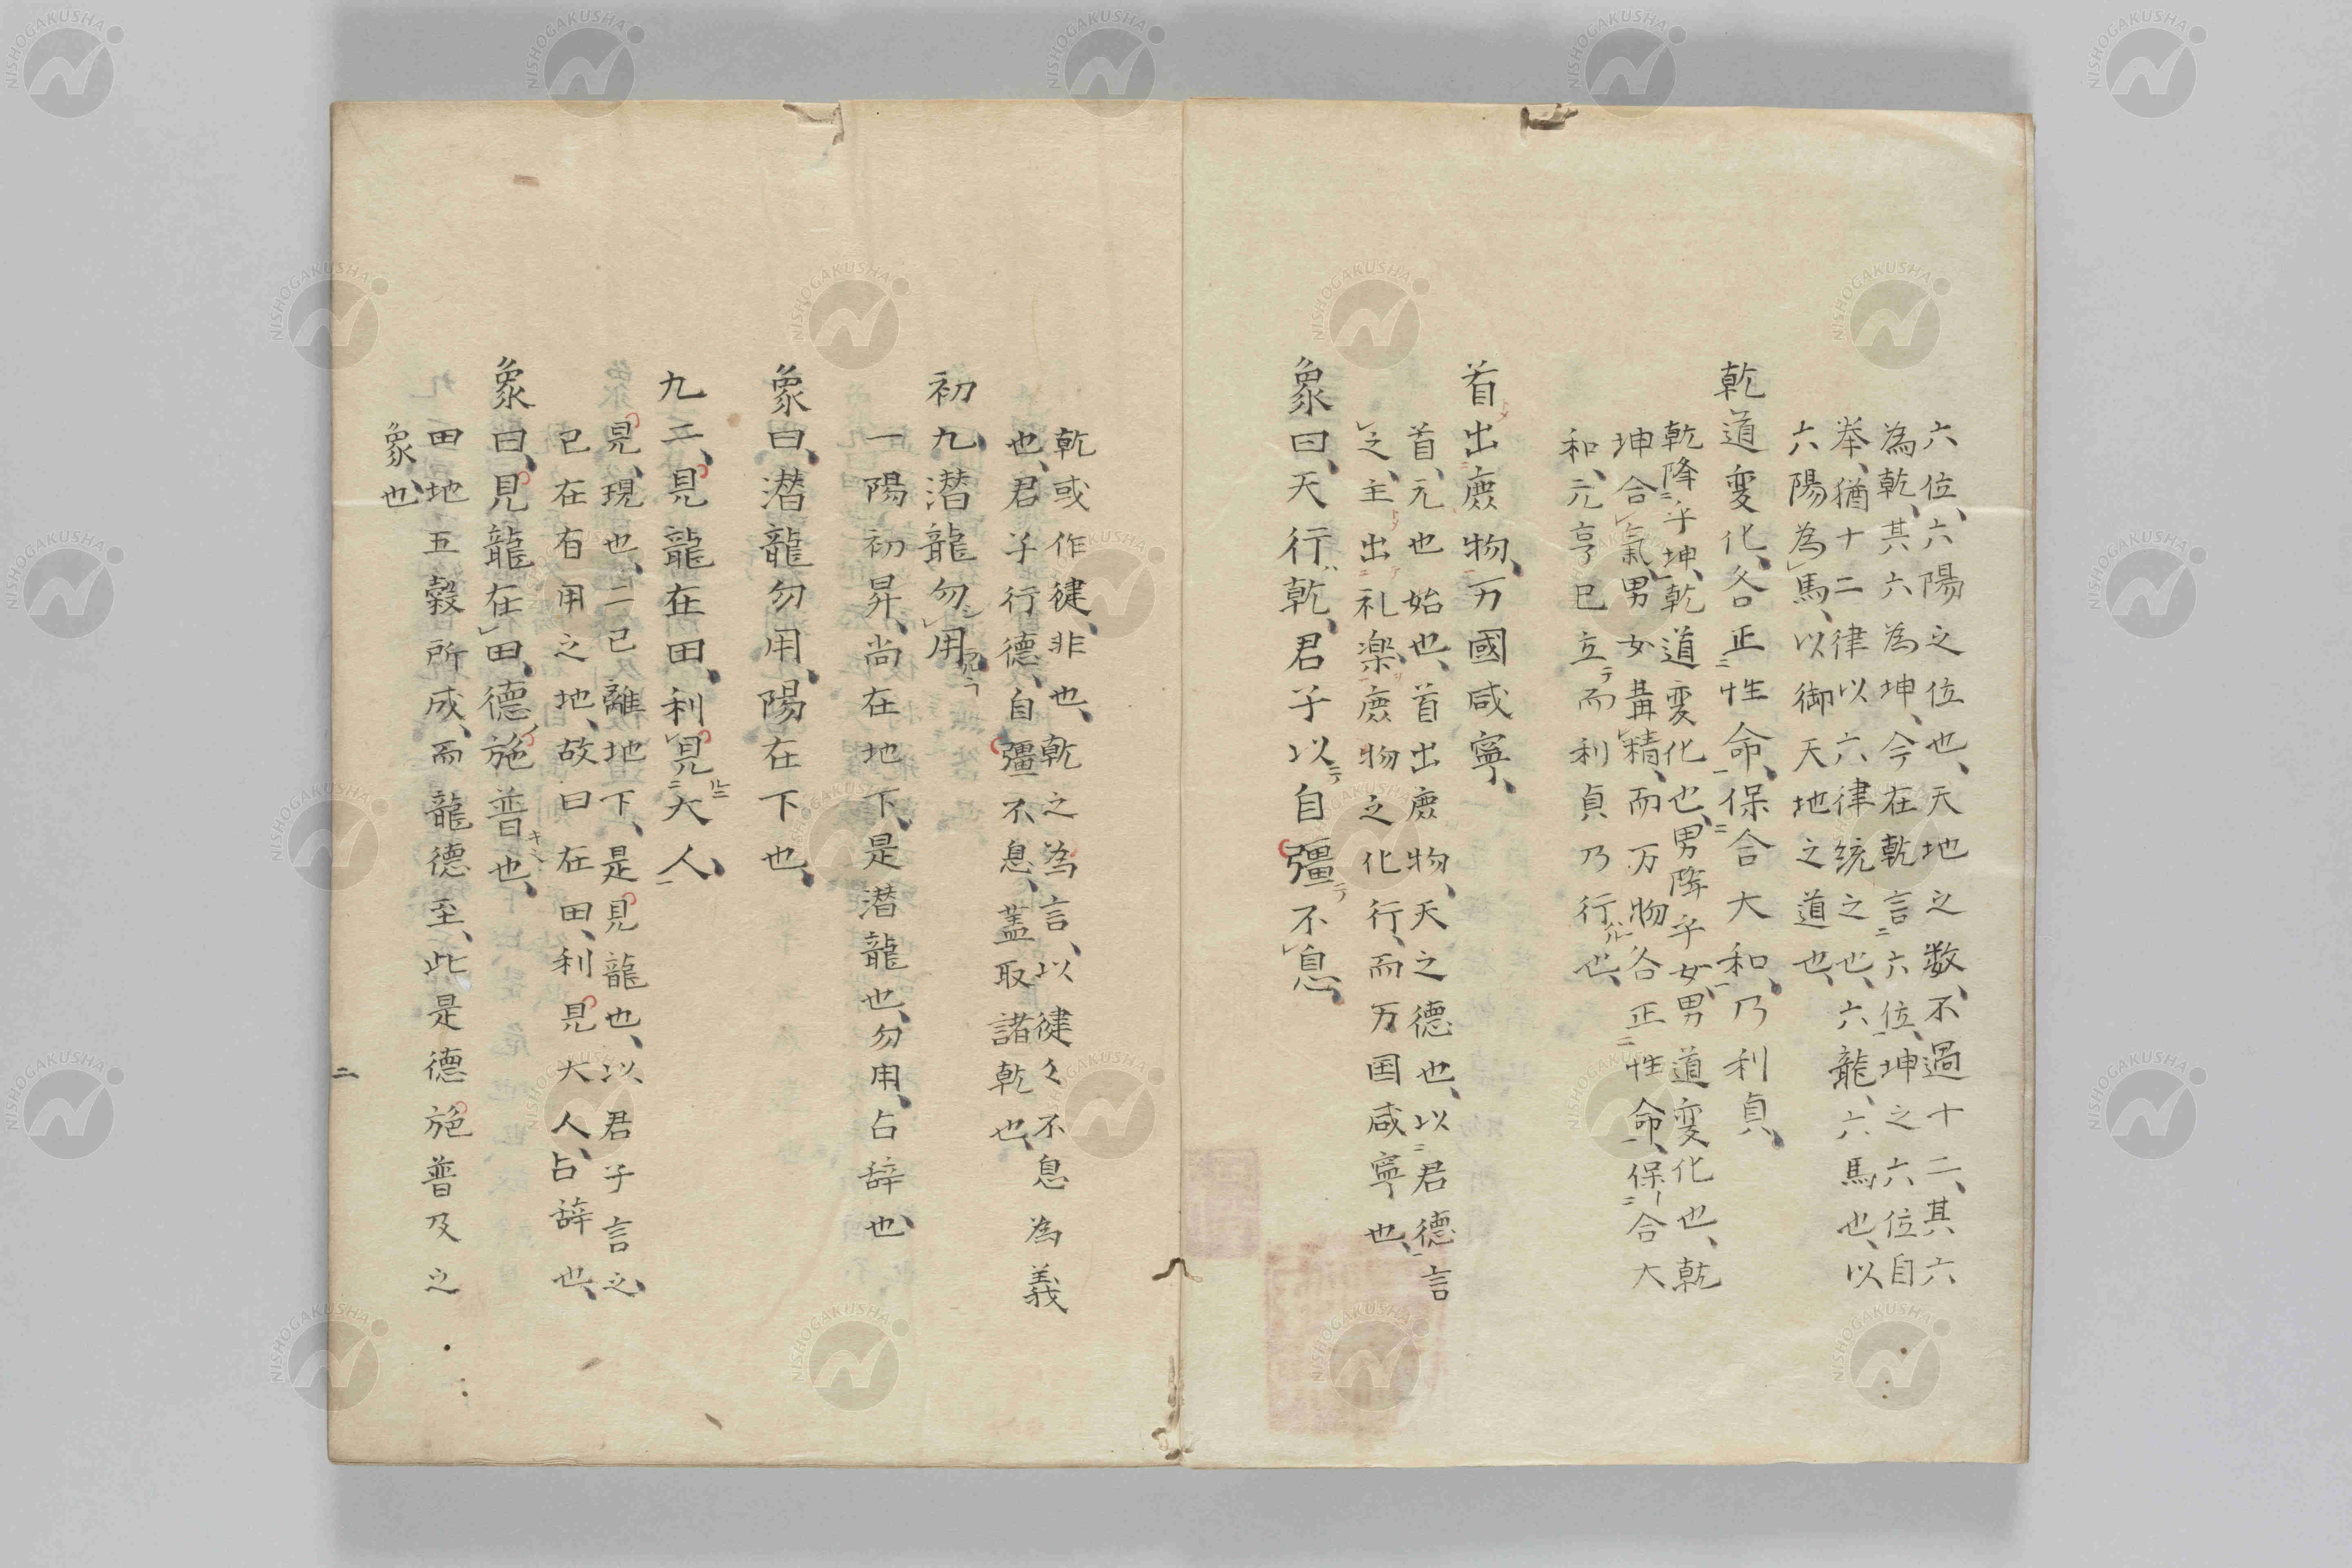 六位、六陽之位也、天地之数、不過十二、其六
為乾、其六為坤、今在乾言六位、坤之六位自
挙、猶十二律以六律統之也、六龍、六馬也、以
六陽為馬、以御天地之道也、
乾道変化、各正性命、保合大和、乃利貞、
乾降乎坤、乾道変化也、男降乎女、男道変化也、乾
坤合氣、男女冓精、而万物各正性命、保合大
和、元亨已立而利貞乃行也、
首出庶物、万國咸寧、
首、元也始也、首出庶物、天之德也、以君德言
之、主出礼楽、庶物之化行、而万国咸寧也、
象曰、天行乾、君子以自彊不息、
乾或作健、非也、乾之為言、以健々不息為義
也、君子行德、自彊不息、蓋取諸乾也、
初九、潜龍勿用
一陽初昇、尚在地下、是潜龍也、勿用、占辞也、
象曰、潜龍勿用、陽在下也、
九二、見龍在田、利見大人、
見、現也、二已離地下、是見龍也、以君子言之、
已在有用之地、故曰在田、利見大人、占辞也、
象曰、見龍在田、德施普也、
田地五穀所成、而龍德至、此是德施普及之
象也、
二
NISHOGAKUSHA